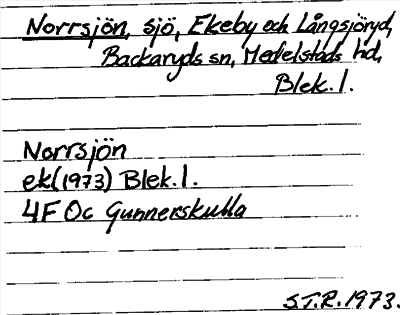 Norrsjön, sjö, Ekeby och Långsjöryd,
Backaryds sn, Medelstads hd,
Blek. l.
Norrsjön
ek(1973) Blek. l.
4F 0c Gunnerskulla
S.T.R. 1973.